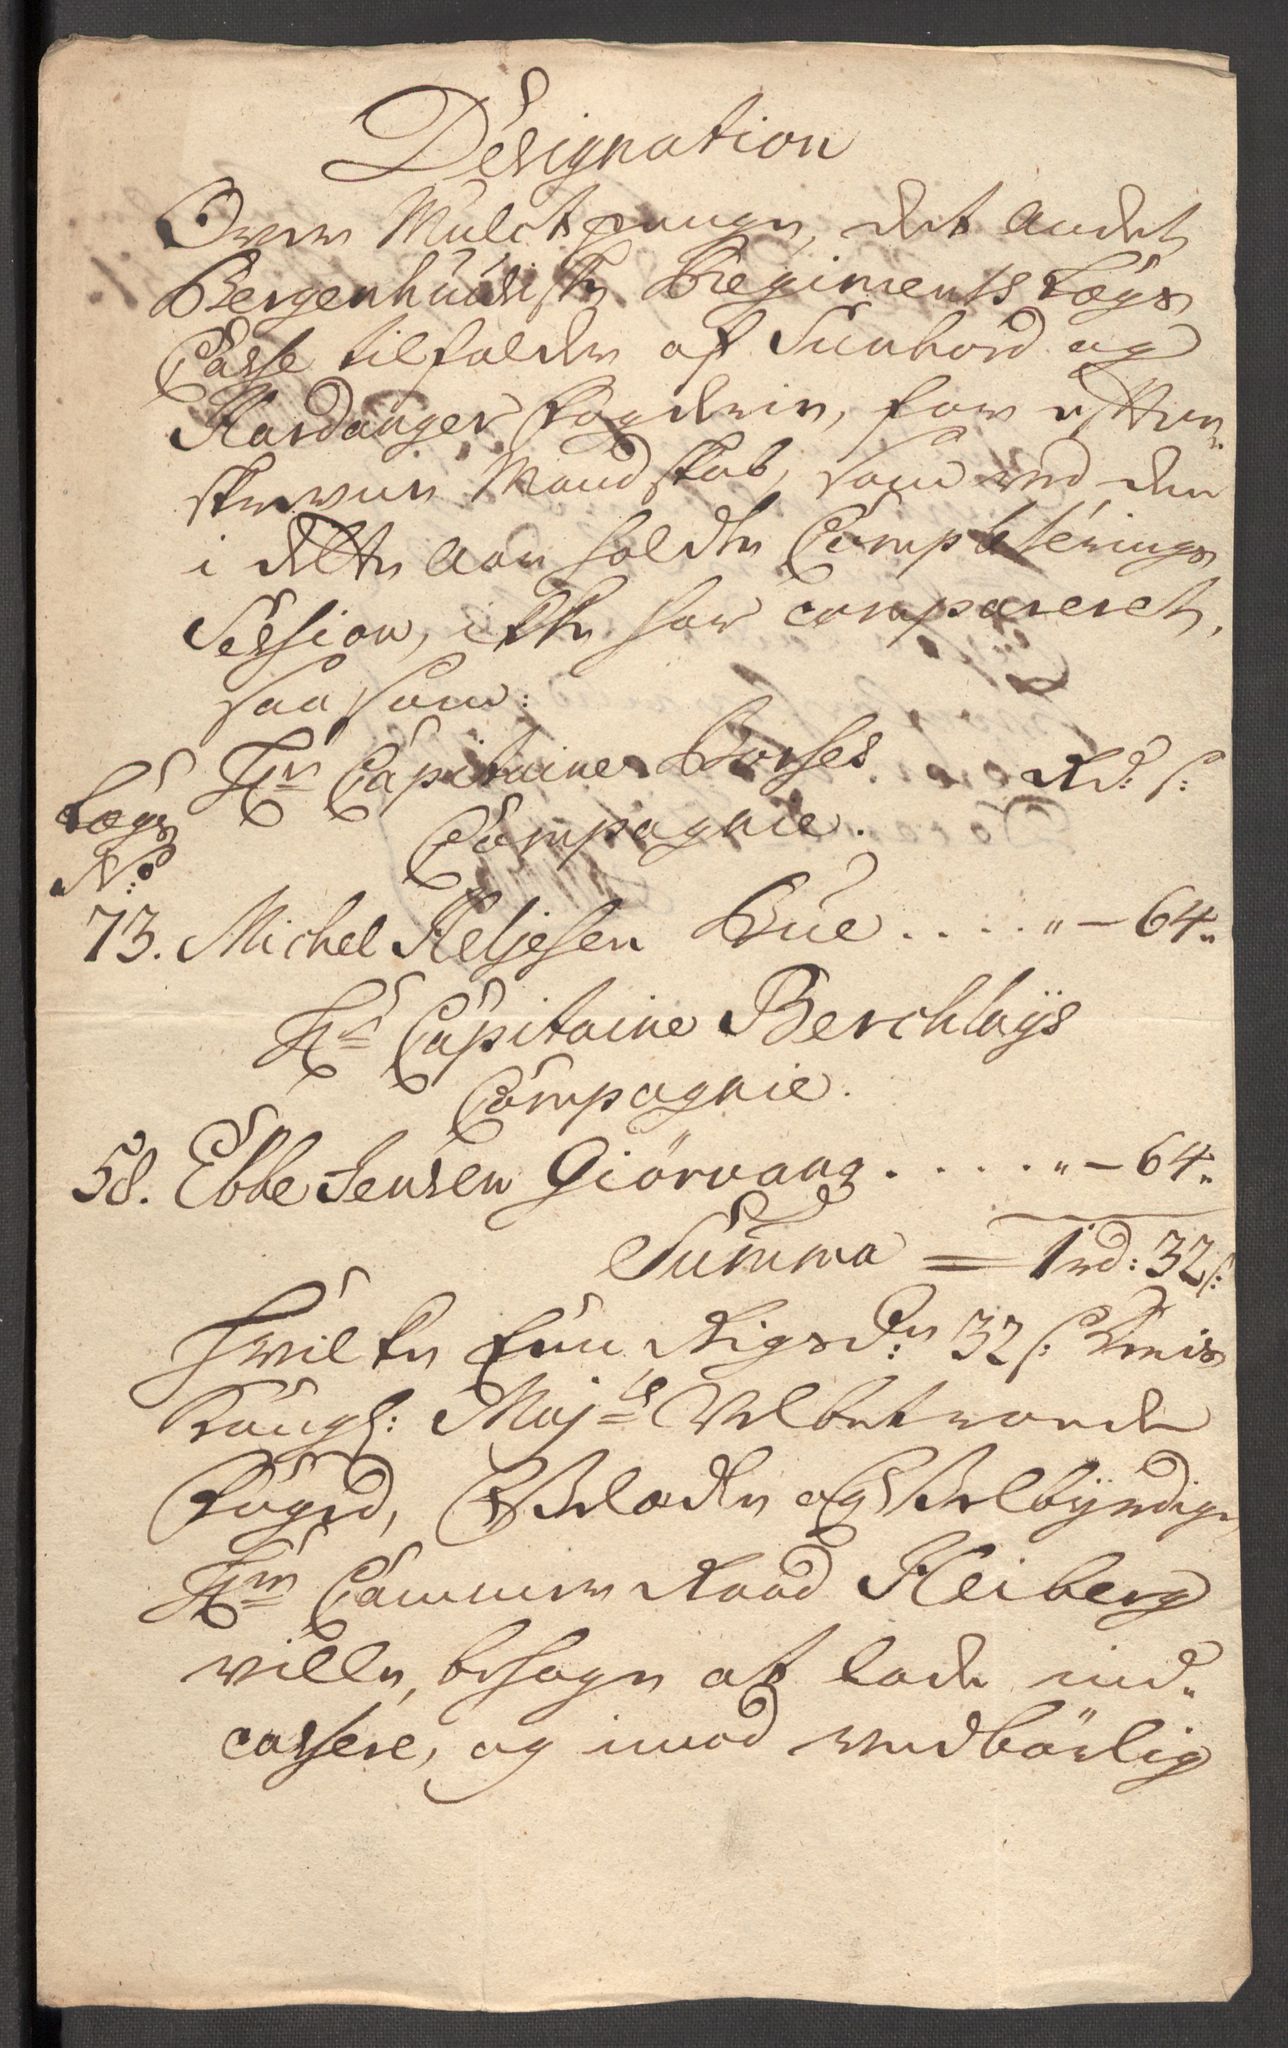 Designation
Over Mulctpenge, det Andet
Bergenhuusiske Regiments Lægs
Casse tilfalden af Sunhord og
Hardanger fogderie, for efter¬
skrevne Mandskab, som ved den
i dette Aar holdte Completerings
Session, ikke har compareret,
saa som:
Hr Capitaine Borses Rd: s:
Lægs
No
Compagnie.
73. Michel Heljesen Bue . . . . „ - 64„
Hr Capitaine Berchlays
Compagnie.
58. Ebbe Jensen Giörvang . . . . . „ - 64„
Summa = 1rd: 32s:
Hvilke Een Rigsdr: 32s: Deris
Kongl: Majts Velbetroede
Foged, Velædle og Velbyrdige
Hr Cammer Raad Heiberg
ville, behage at lade ind¬
cassere, og imod vedbörlig